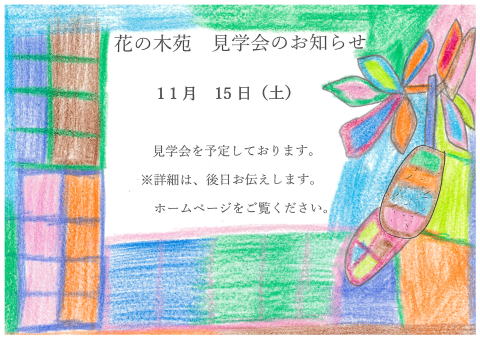 花の木苑　見学会のお知らせ
１１月　15日（土）
見学会を予定しております。
※詳細は、後日お伝えします。
ホームページをご覧ください。